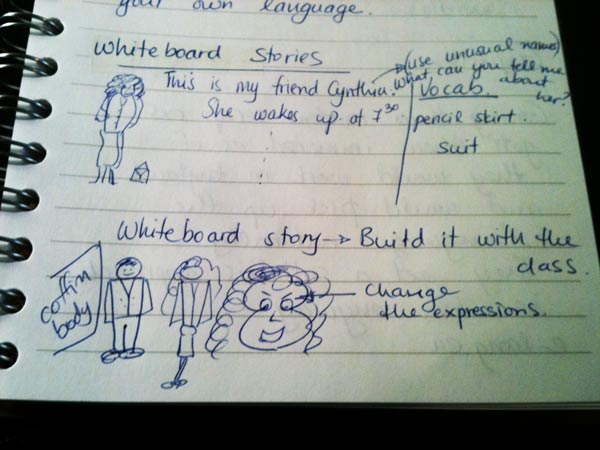 your own language.
Whiteboard Stories
(use unusual names)
This is my friend Cynthia.
What can you tell me about her?
She wakes up at 7 30
Vocab.
pencil skirt.
suit
Whiteboard story → Build it with the class.
coffin body
change the expressions.